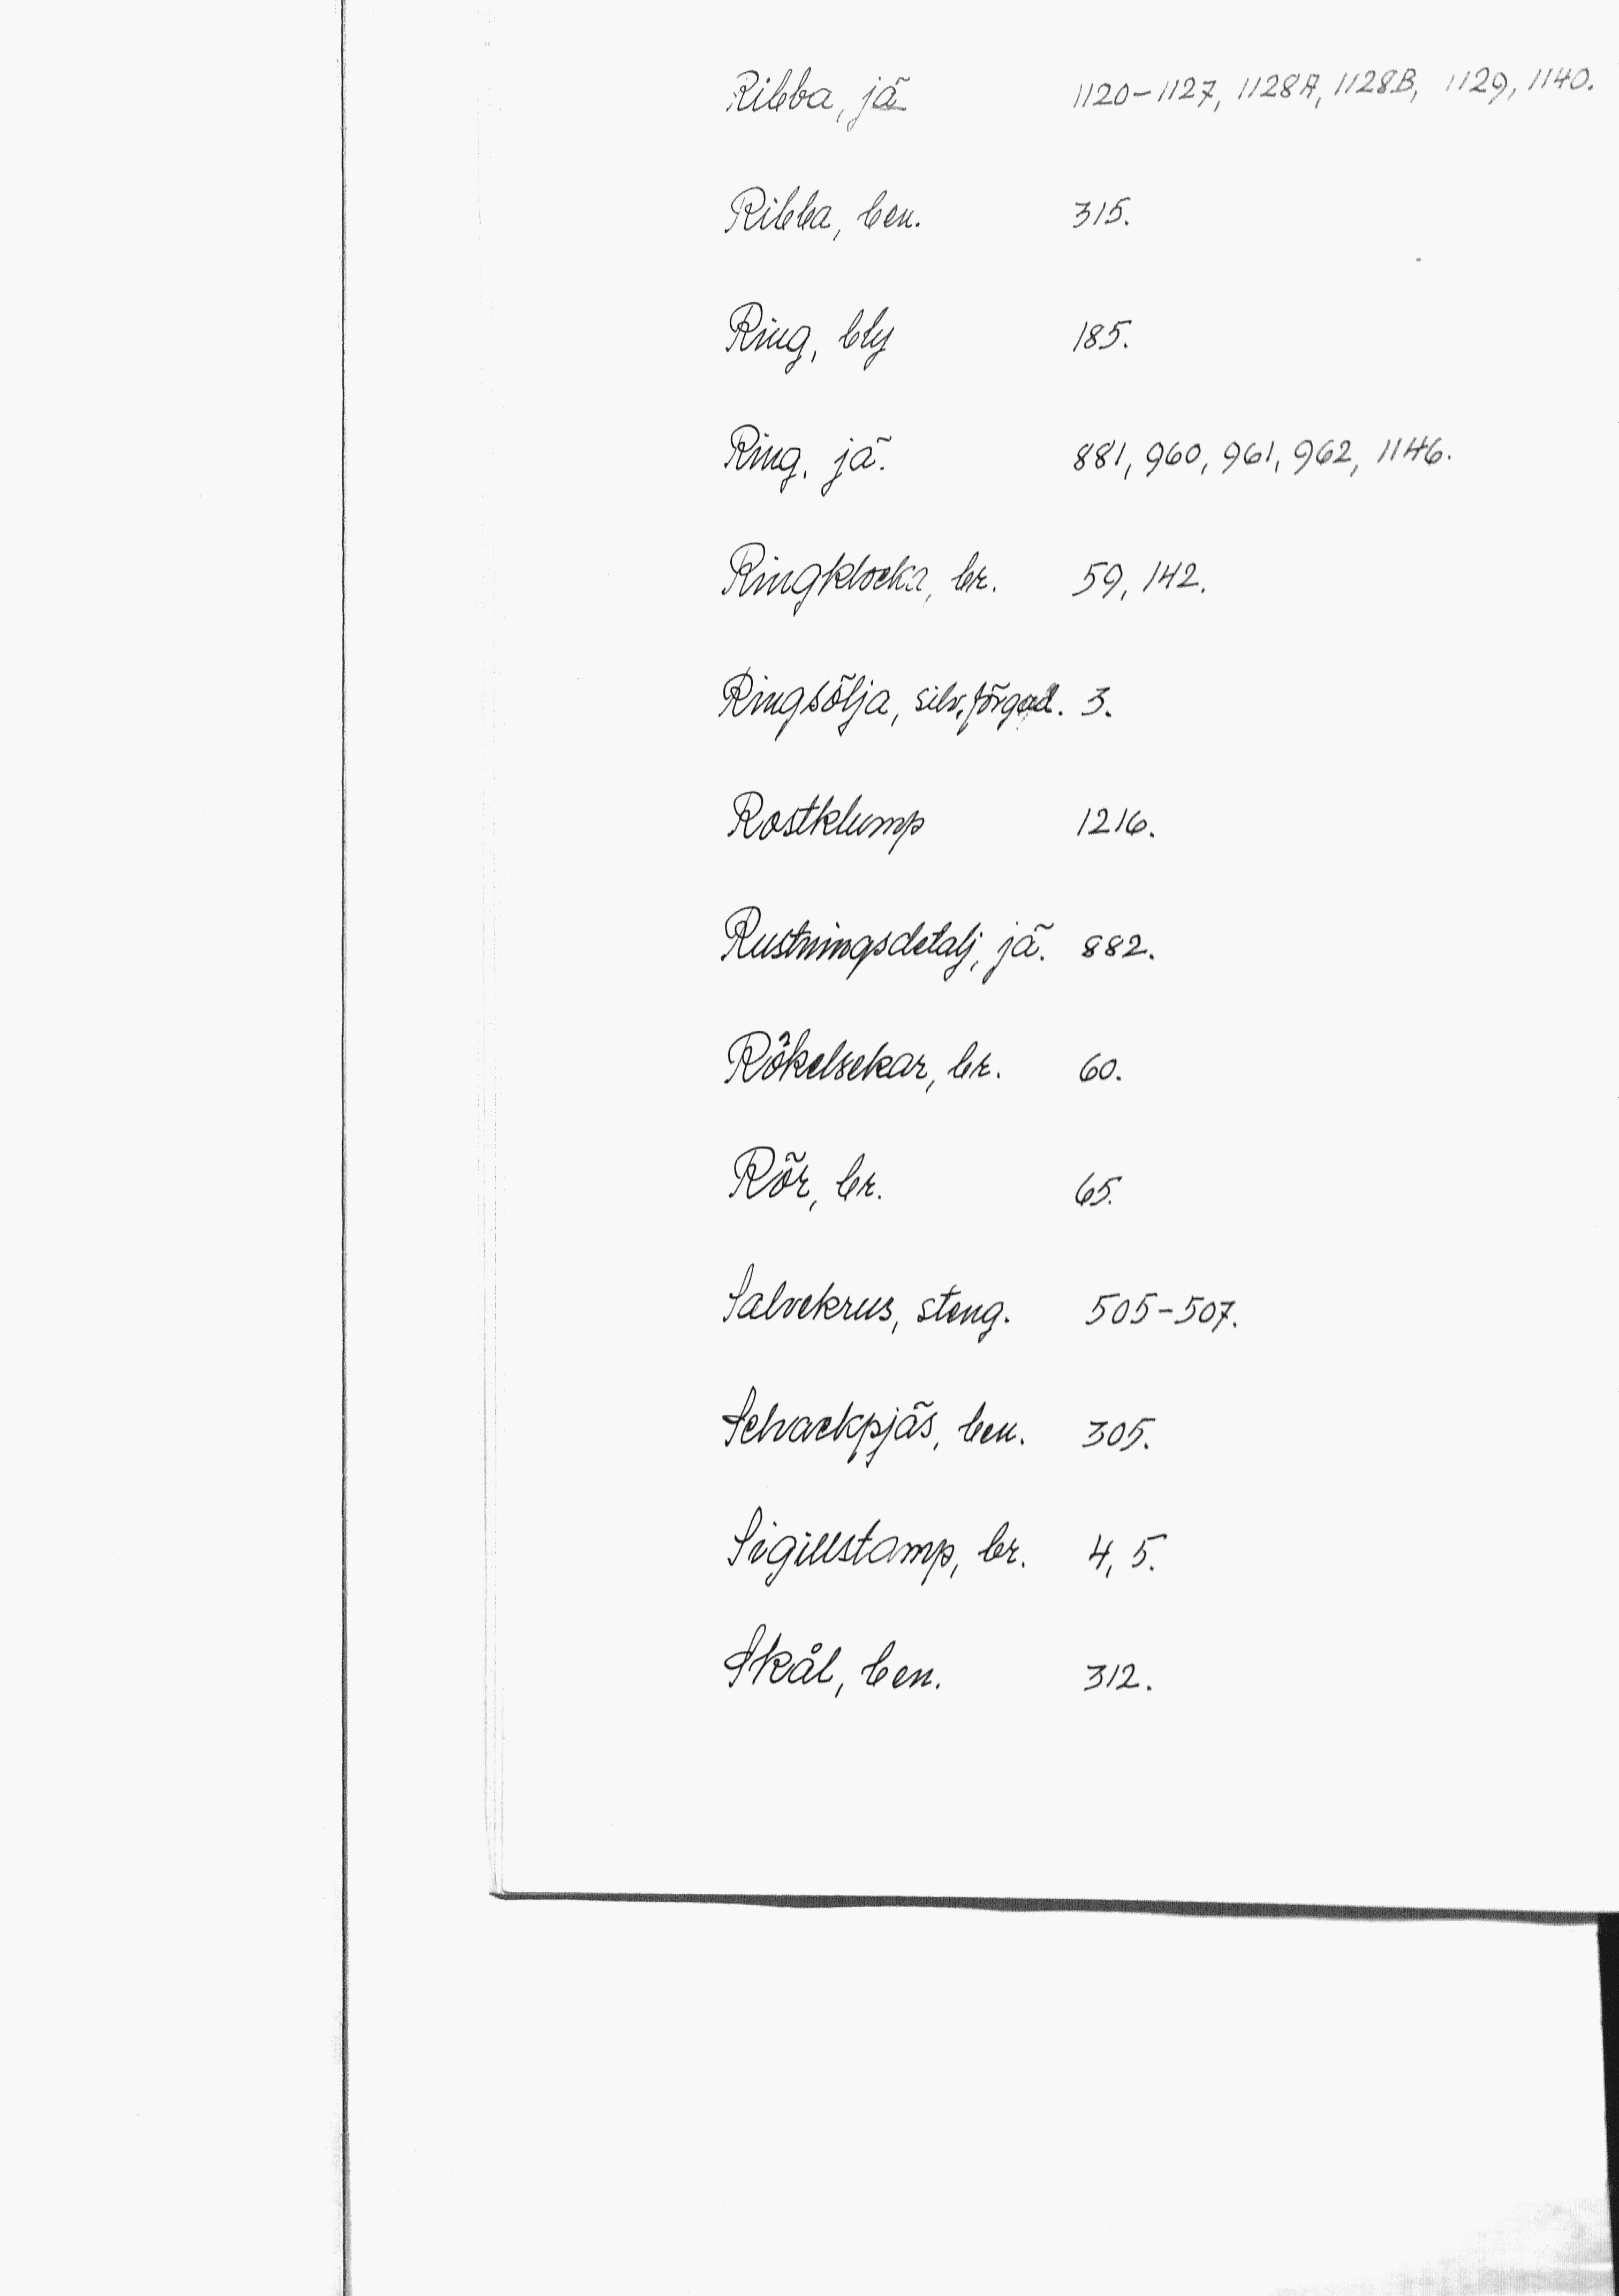 Ribba, jä 1120-1127, 1128A, 1128B, 1129, 1140.
Ribba, ben. 315.
Ring, bly 185.
Ring, jä. 881, 960, 961, 962, 1146.
Ringklocka, br. 59, 142.
Ringsölja, silv. förgad. 3.
Rostklump 1216.
Rustningsdetalj, jä. 882.
Rökelsekar, br. 60.
Rör, br. 65.
Salvekrus, steng. 505-507.
Schackpjäs, ben. 305.
Sigillstamp, br. 4, 5.
Skål, ben. 312.